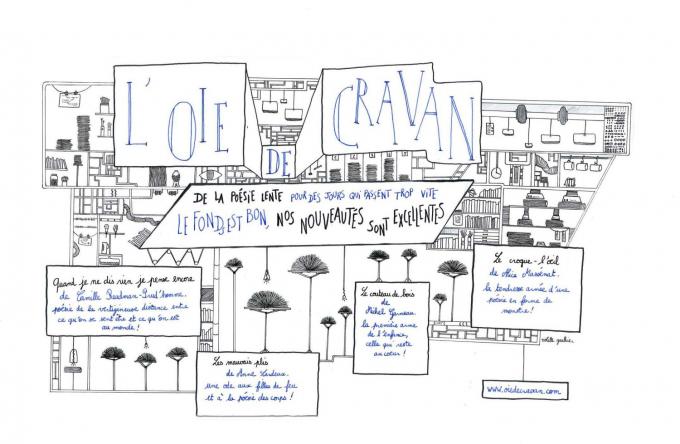 L'OIE
DE
CRAVAN
DE LA POÉSIE LENTE POUR DES JOURS QUI PASSENT TROP VITE
LE FOND EST BON, NOS NOUVEAUTÉS SONT EXCELLENTES
Quand je ne dis rien je pense encore
de Camille Readman-Prud'homme,
poésie de la vertigineuse distance entre
ce qu'on se sent être et ce qu'on est
au monde !
Les mauvais plis
de Anne Lardeux.
une ode aux filles de feu
et à la poésie des corps !
Le couteau de bois
de
Michel Garneau
la première arme
de l'enfance,
celle qui reste
au cœur !
Le croque-l'œil
de Alice Massénat.
la tendresse armée d'une
poésie en forme de
monstre !
www.oiedecravan.com